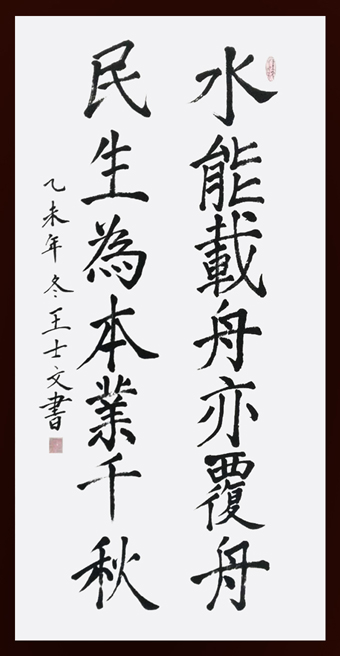 水能載舟亦覆舟
民生為本業千秋
乙未年冬王士文書